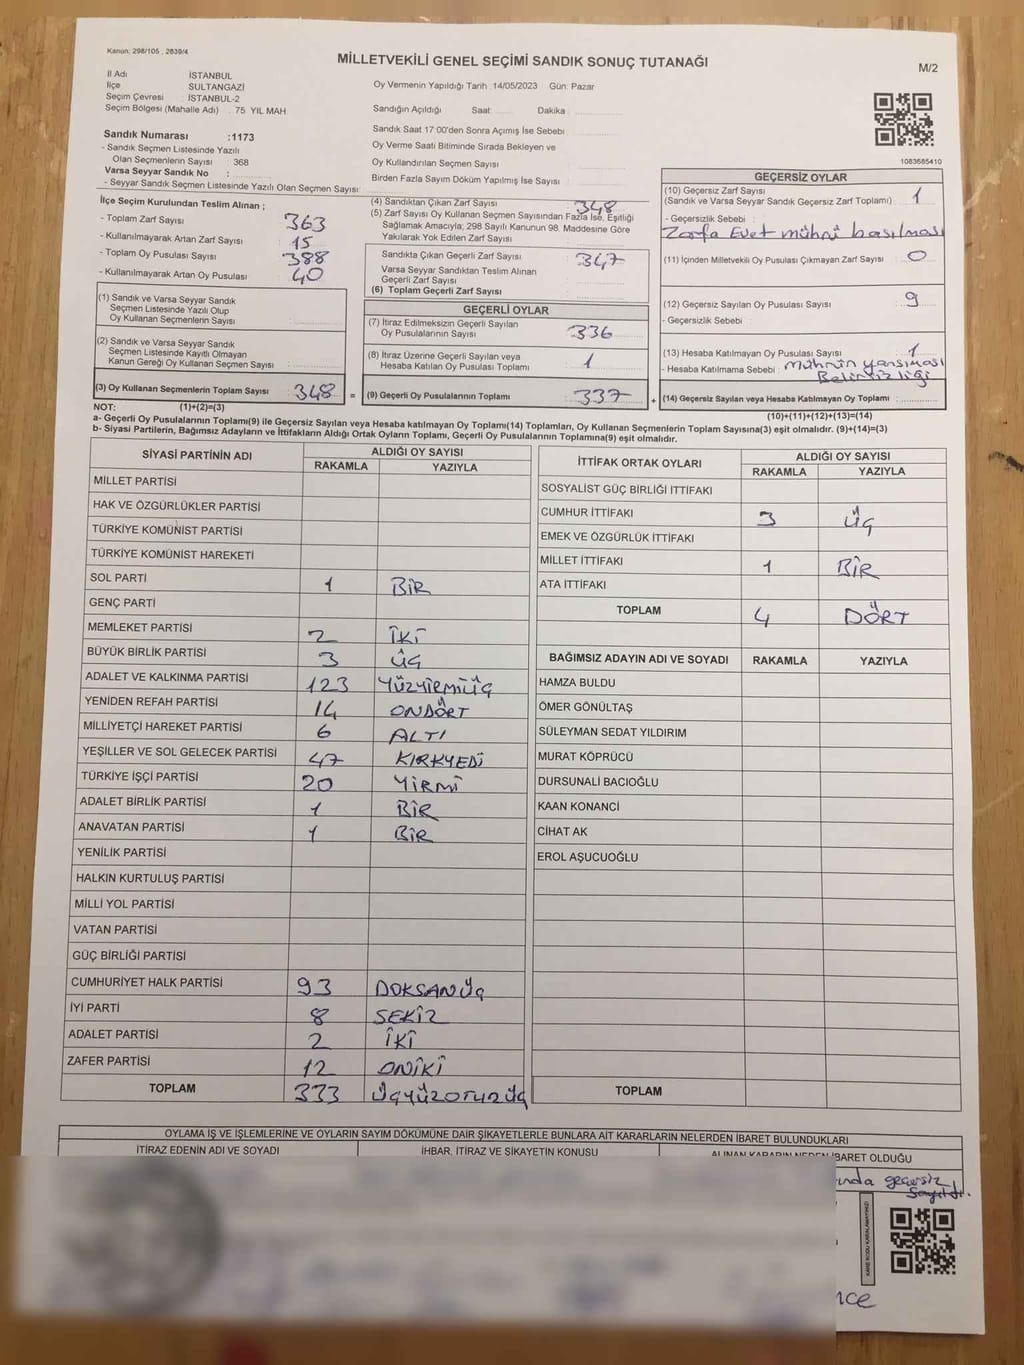 Kanun: 298/105 , 2839/4
MİLLETVEKİLİ GENEL SEÇİMİ SANDIK SONUÇ TUTANAĞI
M/2
İl Adı İSTANBUL
İlçe SULTANGAZİ
Seçim Çevresi İSTANBUL-2
Seçim Bölgesi (Mahalle Adı) . 75 YIL MAH
Sandık Numarası :1173
- Sandık Seçmen Listesinde Yazılı
Olan Seçmenlerin Sayısı : 368
Varsa Seyyar Sandık No :
- Seyyar Sandık Seçmen Listesinde Yazılı Olan Seçmen Sayısı:
Oy Vermenin Yapıldığı Tarih :14/05/2023 Gün: Pazar
Sandığın Açıldığı Saat Dakika
Sandık Saat 17:00'den Sonra Açımış İse Sebebi
Oy Verme Saati Bitiminde Sırada Bekleyen ve
Oy Kullandırılan Seçmen Sayısı
Birden Fazla Sayım Döküm Yapılmış İse Sayısı
1083685410
İlçe Seçim Kurulundan Teslim Alınan ;
- Toplam Zarf Sayısı 363
- Kullanılmayarak Artan Zarf Sayısı 15
- Toplam Oy Pusulası Sayısı 388
- Kullanılmayarak Artan Oy Pusulası 40
(1) Sandık ve Varsa Seyyar Sandık
Seçmen Listesinde Yazılı Olup
Oy Kullanan Seçmenlerin Sayısı
(2) Sandık ve Varsa Seyyar Sandık
Seçmen Listesinde Kayıtlı Olmayan
Kanun Gereği Oy Kullanan Seçmen Sayısı
(3) Oy Kullanan Seçmenlerin Toplam Sayısı 348 =
(4) Sandıktan Çıkan Zarf Sayısı 348
(5) Zarf Sayısı Oy Kullanan Seçmen Sayısından Fazla İse, Eşitliği
Sağlamak Amacıyla; 298 Sayılı Kanunun 98. Maddesine Göre
Yakılarak Yok Edilen Zarf Sayısı
Sandıkta Çıkan Geçerli Zarf Sayısı : 347
Varsa Seyyar Sandıktan Teslim Alınan
Geçerli Zarf Sayısı
(6) Toplam Geçerli Zarf Sayısı
GEÇERLİ OYLAR
(7) İtiraz Edilmeksizin Geçerli Sayılan
Oy Pusulalarının Sayısı 336
(8) İtiraz Üzerine Geçerli Sayılan veya
Hesaba Katılan Oy Pusulaları Toplamı 1
(9) Geçerli Oy Pusulalarının Toplamı 337 +
GEÇERSİZ OYLAR
(10) Geçersiz Zarf Sayısı
(Sandık ve Varsa Seyyar Sandık Geçersiz Zarf Toplamı) : 1
- Geçersizlik Sebebi :
Zarfa Evet mührü basılması
(11) İçinden Milletvekili Oy Pusulası Çıkmayan Zarf Sayısı : 0
(12) Geçersiz Sayılan Oy Pusulası Sayısı : 9
- Geçersizlik Sebebi :
(13) Hesaba Katılmayan Oy Pusulası Sayısı : 1
- Hesaba Katılmama Sebebi : Mührün yansıması
Belirsizliği
(14) Geçersiz Sayılan veya Hesaba Katılmayan Oy Toplamı :
NOT: (1)+(2)=(3)
(10)+(11)+(12)+(13)=(14)
a- Geçerli Oy Pusulalarının Toplamı(9) ile Geçersiz Sayılan veya Hesaba katılmayan Oy Toplamı(14) Toplamları, Oy Kullanan Seçmenlerin Toplam Sayısına(3) eşit olmalıdır. (9)+(14)=(3)
b- Siyasi Partilerin, Bağımsız Adayların ve İttifakların Aldığı Ortak Oyların Toplamı, Geçerli Oy Pusulalarının Toplamına(9) eşit olmalıdır.
SİYASİ PARTİNİN ADI ALDIĞI OY SAYISI
RAKAMLA YAZIYLA
MİLLET PARTİSİ
HAK VE ÖZGÜRLÜKLER PARTİSİ
TÜRKİYE KOMÜNİST PARTİSİ
TÜRKİYE KOMÜNİST HAREKETİ
SOL PARTİ 1 BİR
GENÇ PARTİ
MEMLEKET PARTİSİ 2 İKİ
BÜYÜK BİRLİK PARTİSİ 3 ÜÇ
ADALET VE KALKINMA PARTİSİ 123 YÜZYİRMİÜÇ
YENİDEN REFAH PARTİSİ 14 ONDÖRT
MİLLİYETÇİ HAREKET PARTİSİ 6 ALTI
YEŞİLLER VE SOL GELECEK PARTİSİ 47 KIRKYEDİ
TÜRKİYE İŞÇİ PARTİSİ 20 YİRMİ
ADALET BİRLİK PARTİSİ 1 BİR
ANAVATAN PARTİSİ 1 BİR
YENİLİK PARTİSİ
HALKIN KURTULUŞ PARTİSİ
MİLLİ YOL PARTİSİ
VATAN PARTİSİ
GÜÇ BİRLİĞİ PARTİSİ
CUMHURİYET HALK PARTİSİ 93 DOKSANÜÇ
İYİ PARTİ 8 SEKİZ
ADALET PARTİSİ 2 İKİ
ZAFER PARTİSİ 12 ONİKİ
TOPLAM 333 ÜÇYÜZOTUZÜÇ
İTTİFAK ORTAK OYLARI ALDIĞI OY SAYISI
RAKAMLA YAZIYLA
SOSYALİST GÜÇ BİRLİĞİ İTTİFAKI
CUMHUR İTTİFAKI 3 ÜÇ
EMEK VE ÖZGÜRLÜK İTTİFAKI
MİLLET İTTİFAKI 1 BİR
ATA İTTİFAKI
TOPLAM 4 DÖRT
BAĞIMSIZ ADAYIN ADI VE SOYADI RAKAMLA YAZIYLA
HAMZA BULDU
ÖMER GÖNÜLTAŞ
SÜLEYMAN SEDAT YILDIRIM
MURAT KÖPRÜCÜ
DURSUNALİ BACIOĞLU
KAAN KONANCİ
CİHAT AK
EROL AŞUCUOĞLU
TOPLAM
OYLAMA İŞ VE İŞLEMLERİNE VE OYLARIN SAYIM DÖKÜMÜNE DAİR ŞİKAYETLERLE BUNLARA AİT KARARLARIN NELERDEN İBARET BULUNDUKLARI
İTİRAZ EDENİN ADI VE SOYADI İHBAR, İTİRAZ VE ŞİKAYETİN KONUSU ALINAN KARARIN NEDEN İBARET OLDUĞU
ında geçersiz
sayıldı.